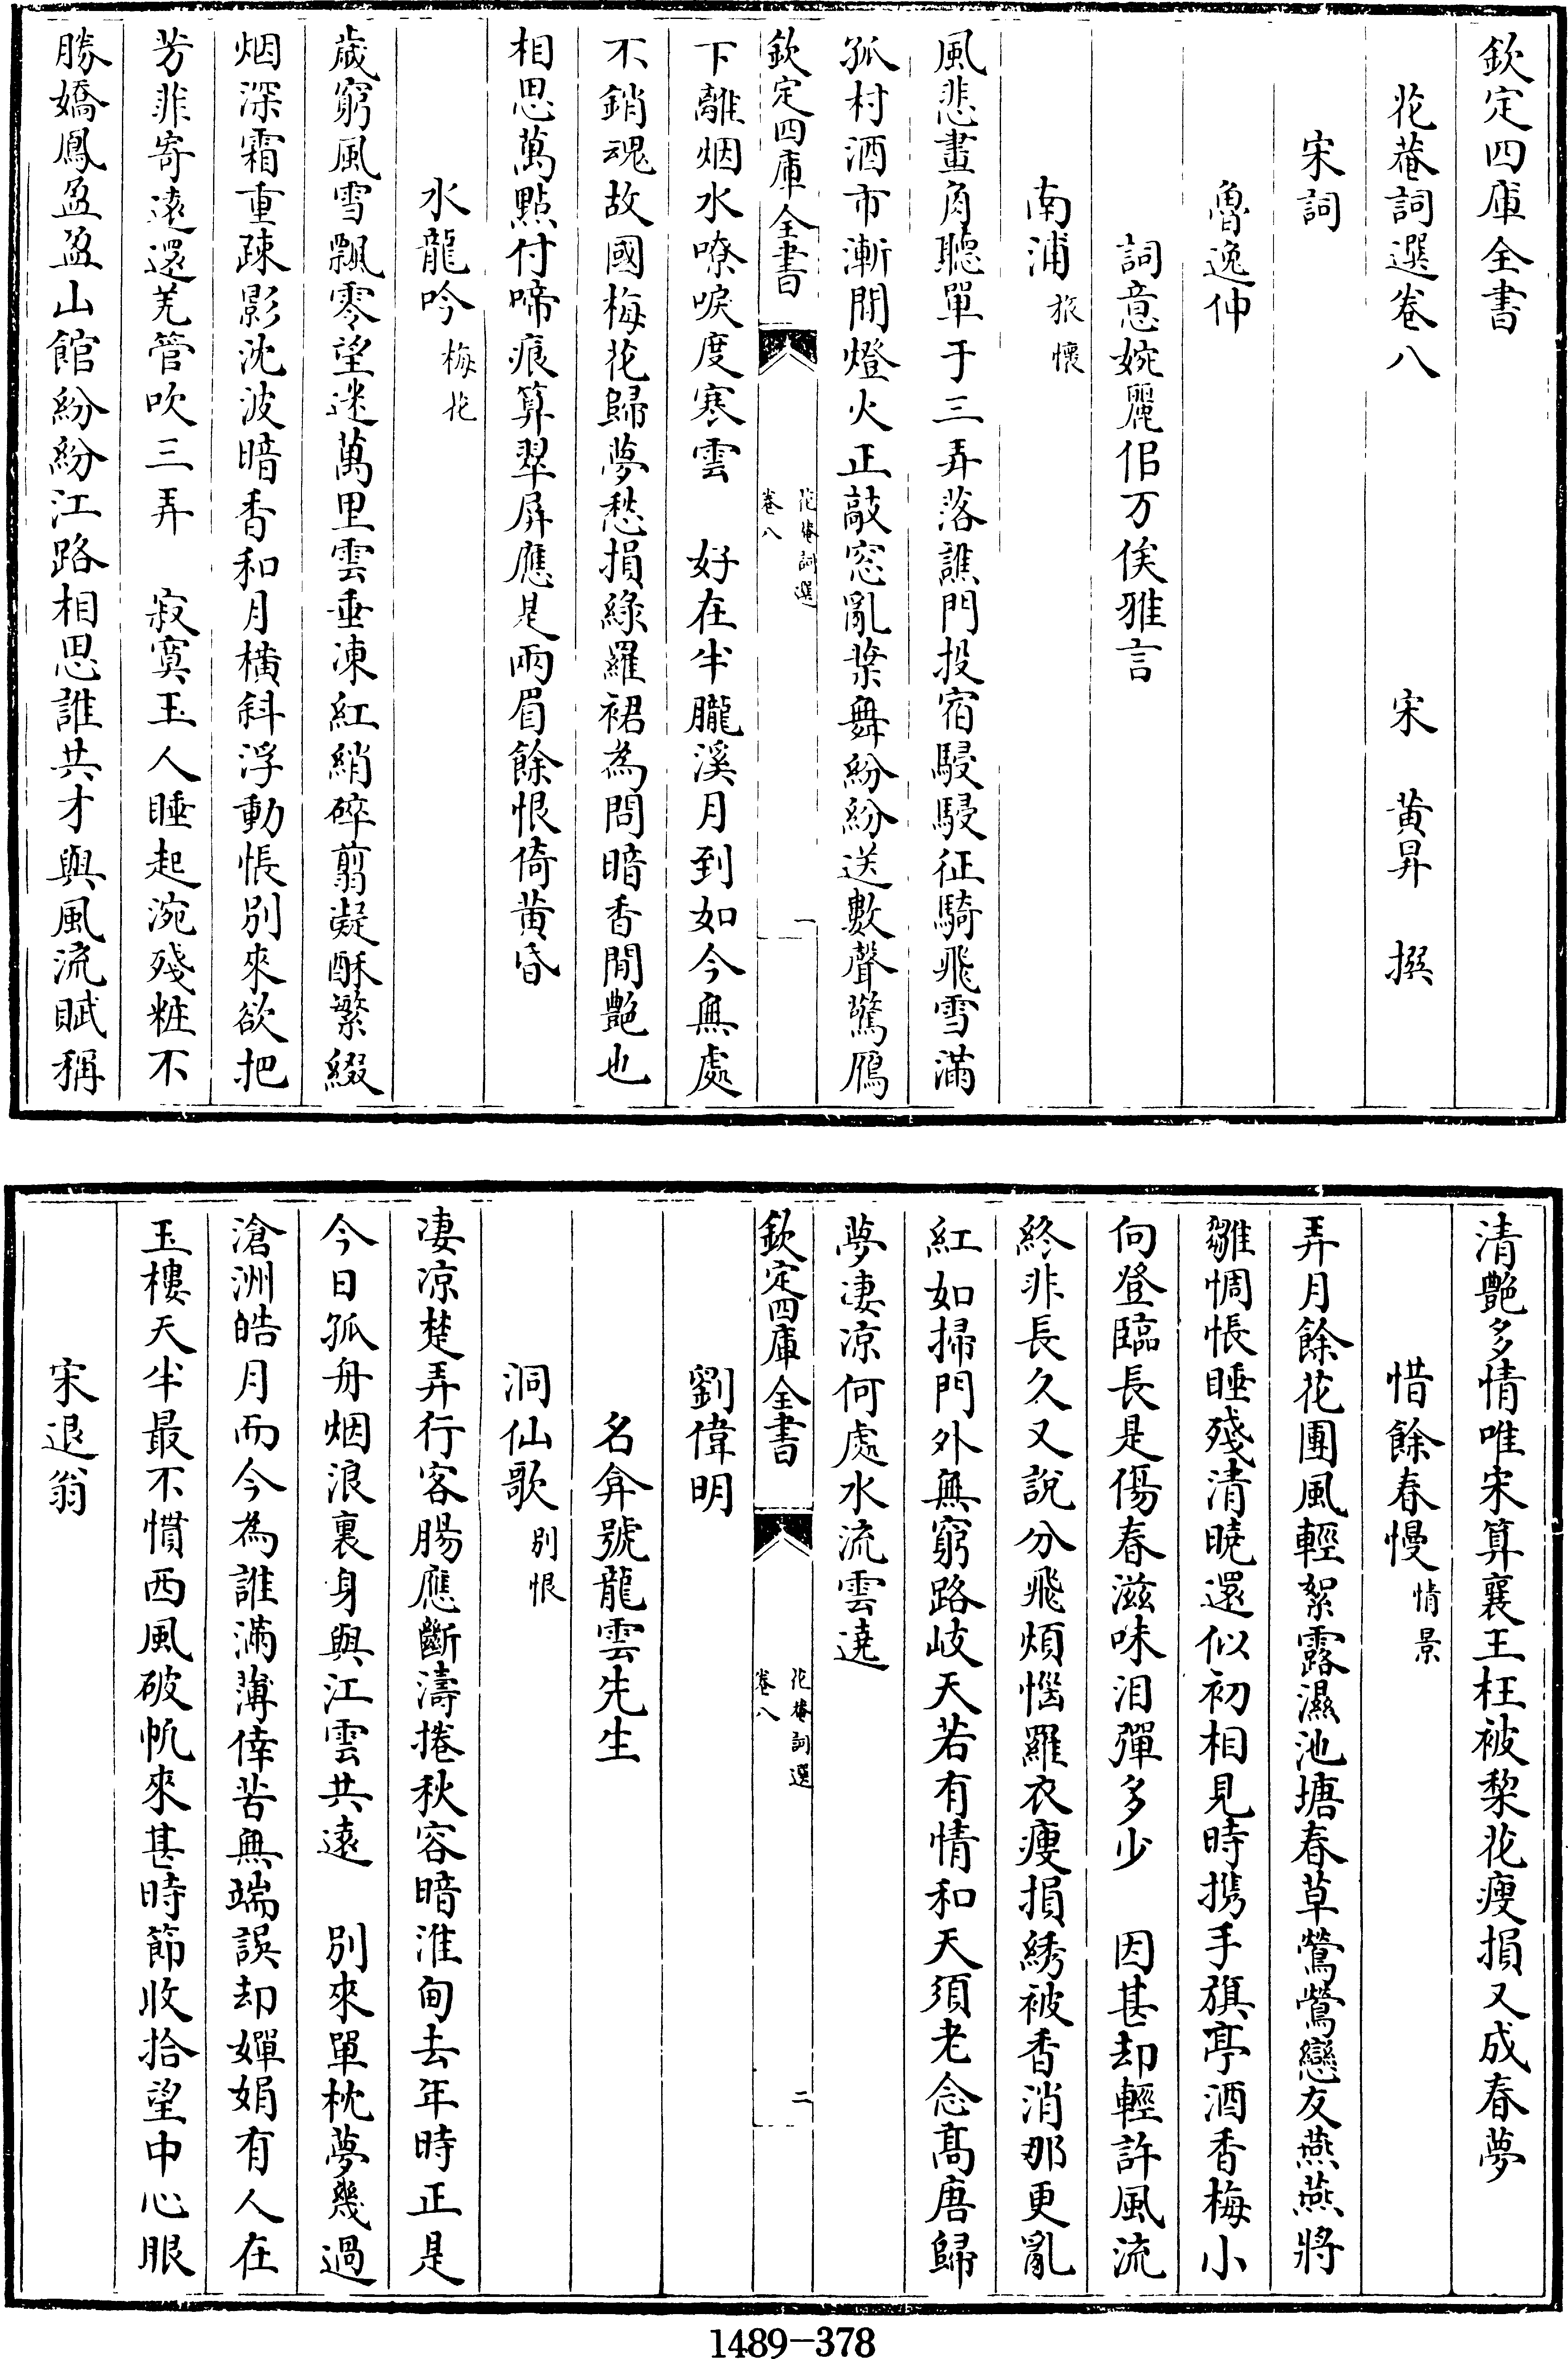 欽定四庫全書
花菴詞選卷八　宋　黃昇　撰
宋詞
魯逸仲
詞意婉麗佀万俟雅言
南浦 旅懷
風悲畫角聽單于三弄落譙門投宿駸駸征騎飛雪滿
孤村酒市漸閒燈火正敲窓亂葉舞紛紛送數聲驚鴈
欽定四庫全書
花菴詞選
卷八
一
下離烟水嘹唳度寒雲　好在半朧溪月到如今無處
不銷魂故國梅花歸夢愁損綠羅裙為問暗香閒艶也
相思萬點付啼痕算翠屏應是兩眉餘恨倚黃昏
水龍吟 梅花
歲窮風雪飄零望迷萬里雲垂凍紅綃碎翦凝酥繁綴
烟深霜重疎影沈波暗香和月橫斜浮動悵別來欲把
芳菲寄遠還羌管吹三弄　寂寞玉人睡起涴殘粧不
勝嬌鳳盈盈山館紛紛江路相思誰共才與風流賦稱
清艶多情唯宋算襄王枉被梨花瘦損又成春夢
惜餘春慢 情景
弄月餘花團風輕絮露濕池塘春草鶯鶯戀友燕燕將
雛惆悵睡殘清曉還似初相見時携手旗亭酒香梅小
向登臨長是傷春滋味泪彈多少　因甚却輕許風流
終非長久又說分飛煩惱羅衣瘦損綉被香消那更亂
紅如掃門外無窮路岐天若有情和天須老念高唐歸
夢凄凉何處水流雲遶
欽定四庫全書
花菴詞選
卷八
二
劉偉明
名弇號龍雲先生
洞仙歌 別恨
凄凉楚弄行客腸應斷濤捲秋容暗淮甸去年時正是
今日孤舟烟浪裏身與江雲共遠　別來單枕夢幾過
滄洲皓月而今為誰滿薄倖苦無端誤却嬋娟有人在
玉樓天半最不慣西風破帆來甚時節收拾望中心眼
宋退翁
1489-378